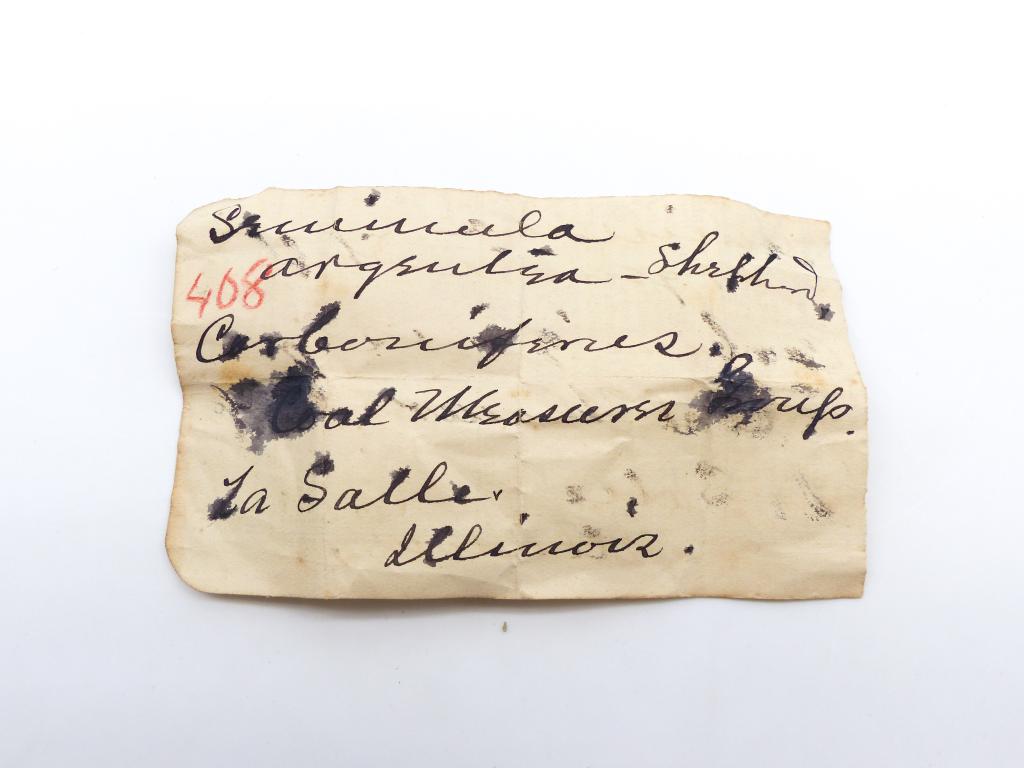 Seminula
argentea - Shepherd
408
Carboniferes.
Coal Measures Group.
La Salle.
Illinois.